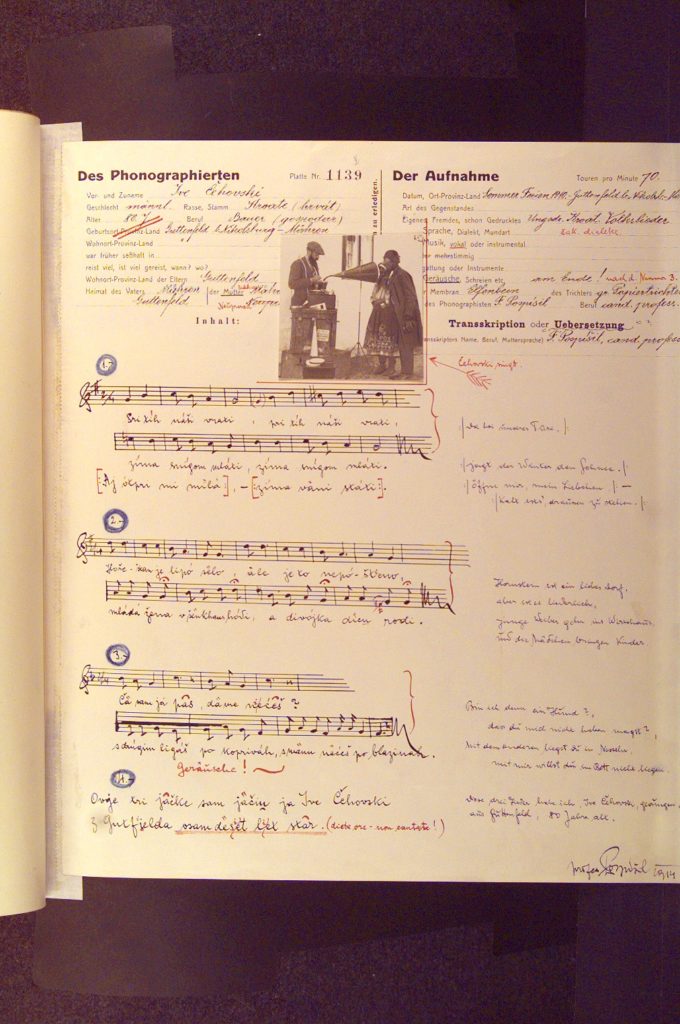 Des Phonographierten
Platte Nr. 1139
Vor- und Zuname Ive Čehovski
Geschlecht männl. Rasse, Stamm Kroate (hrvát)
Alter 80 J. Beruf Bauer (gospodar)
Geburtsort-Provinz-Land Guttenfeld b. Nikolsburg - Mähren
Wohnort-Provinz-Land
war früher seßhaft in
reist viel, ist viel gereist, wann? wo?
Wohnort-Provinz-Land der Eltern Guttenfeld
Heimat des Vaters Mähren | der Mutter Mähren
Guttenfeld
Inhalt:
zu erledigen.
Der Aufnahme
Touren pro Minute 70.
Datum, Ort-Provinz-Land Sommer Ferien 1910, Guttenfeld b. Nikolsb.
Art des Gegenstandes
Eigenes Fremdes, schon Gedrucktes Ungedr. Kroat. Volkslieder
Sprache, Dialekt, Mundart čak. dialekt.
Musik, vokal oder instrumental
mehrstimmig
Gattung oder Instrumente
Geräusche, Schreien etc. am Ende! nach d. Numma 3.
Membran des Trichters gr. Papiertrichter
des Phonographisten F. Pospišil Beruf cand. profess.
Transskription oder Uebersetzung
Name, Beruf, Muttersprache) F. Pospišil, cand. profess.
Čehovski singt.
1.
Pri tih náši vrati, pri tih náši vrati,
zíma snígom mláti, zíma snígom mláti.
[Aj otpri mi mílá], – [zíma váni státi].
|: Da bei unserer Türe, :|
|: jagt der Winter den Schnee. :|
|: Öffne mir, mein Liebchen :| –
|: Kalt ists draussen zu stehen. :|
2.
je lipó sélo, ále je to nepó-šteno,
mládá žena, a divójka díen rodi.
Hornstein ist ein liebes Dorf,
aber ist es liederlich,
junge Weiber gehn ins Wirtshaus,
und die Mädchen bringen Kinder.
3.
Ča sam já pás, dá me nečéš?
s drugim ligáš po koprivâh, s mánu néčéš po blazínah.
Geräusche!
Bin ich denn ein Hund?,
das du mich nicht haben magst?,
Mit dem anderen liegst du in Nesseln,
mit mir willst du im Bett nicht liegen.
4.
Ovoje tri jáčke sam jáčiu ja Ive Čehovski
z Gutfjelda osam dését liét stár. (dicto ore - non cantato!)
Diese drei Lieder habe ich, Ive Čehovski, gesungen
aus Guttenfeld, 80 Jahre alt.
profess. Pospíšil 1914